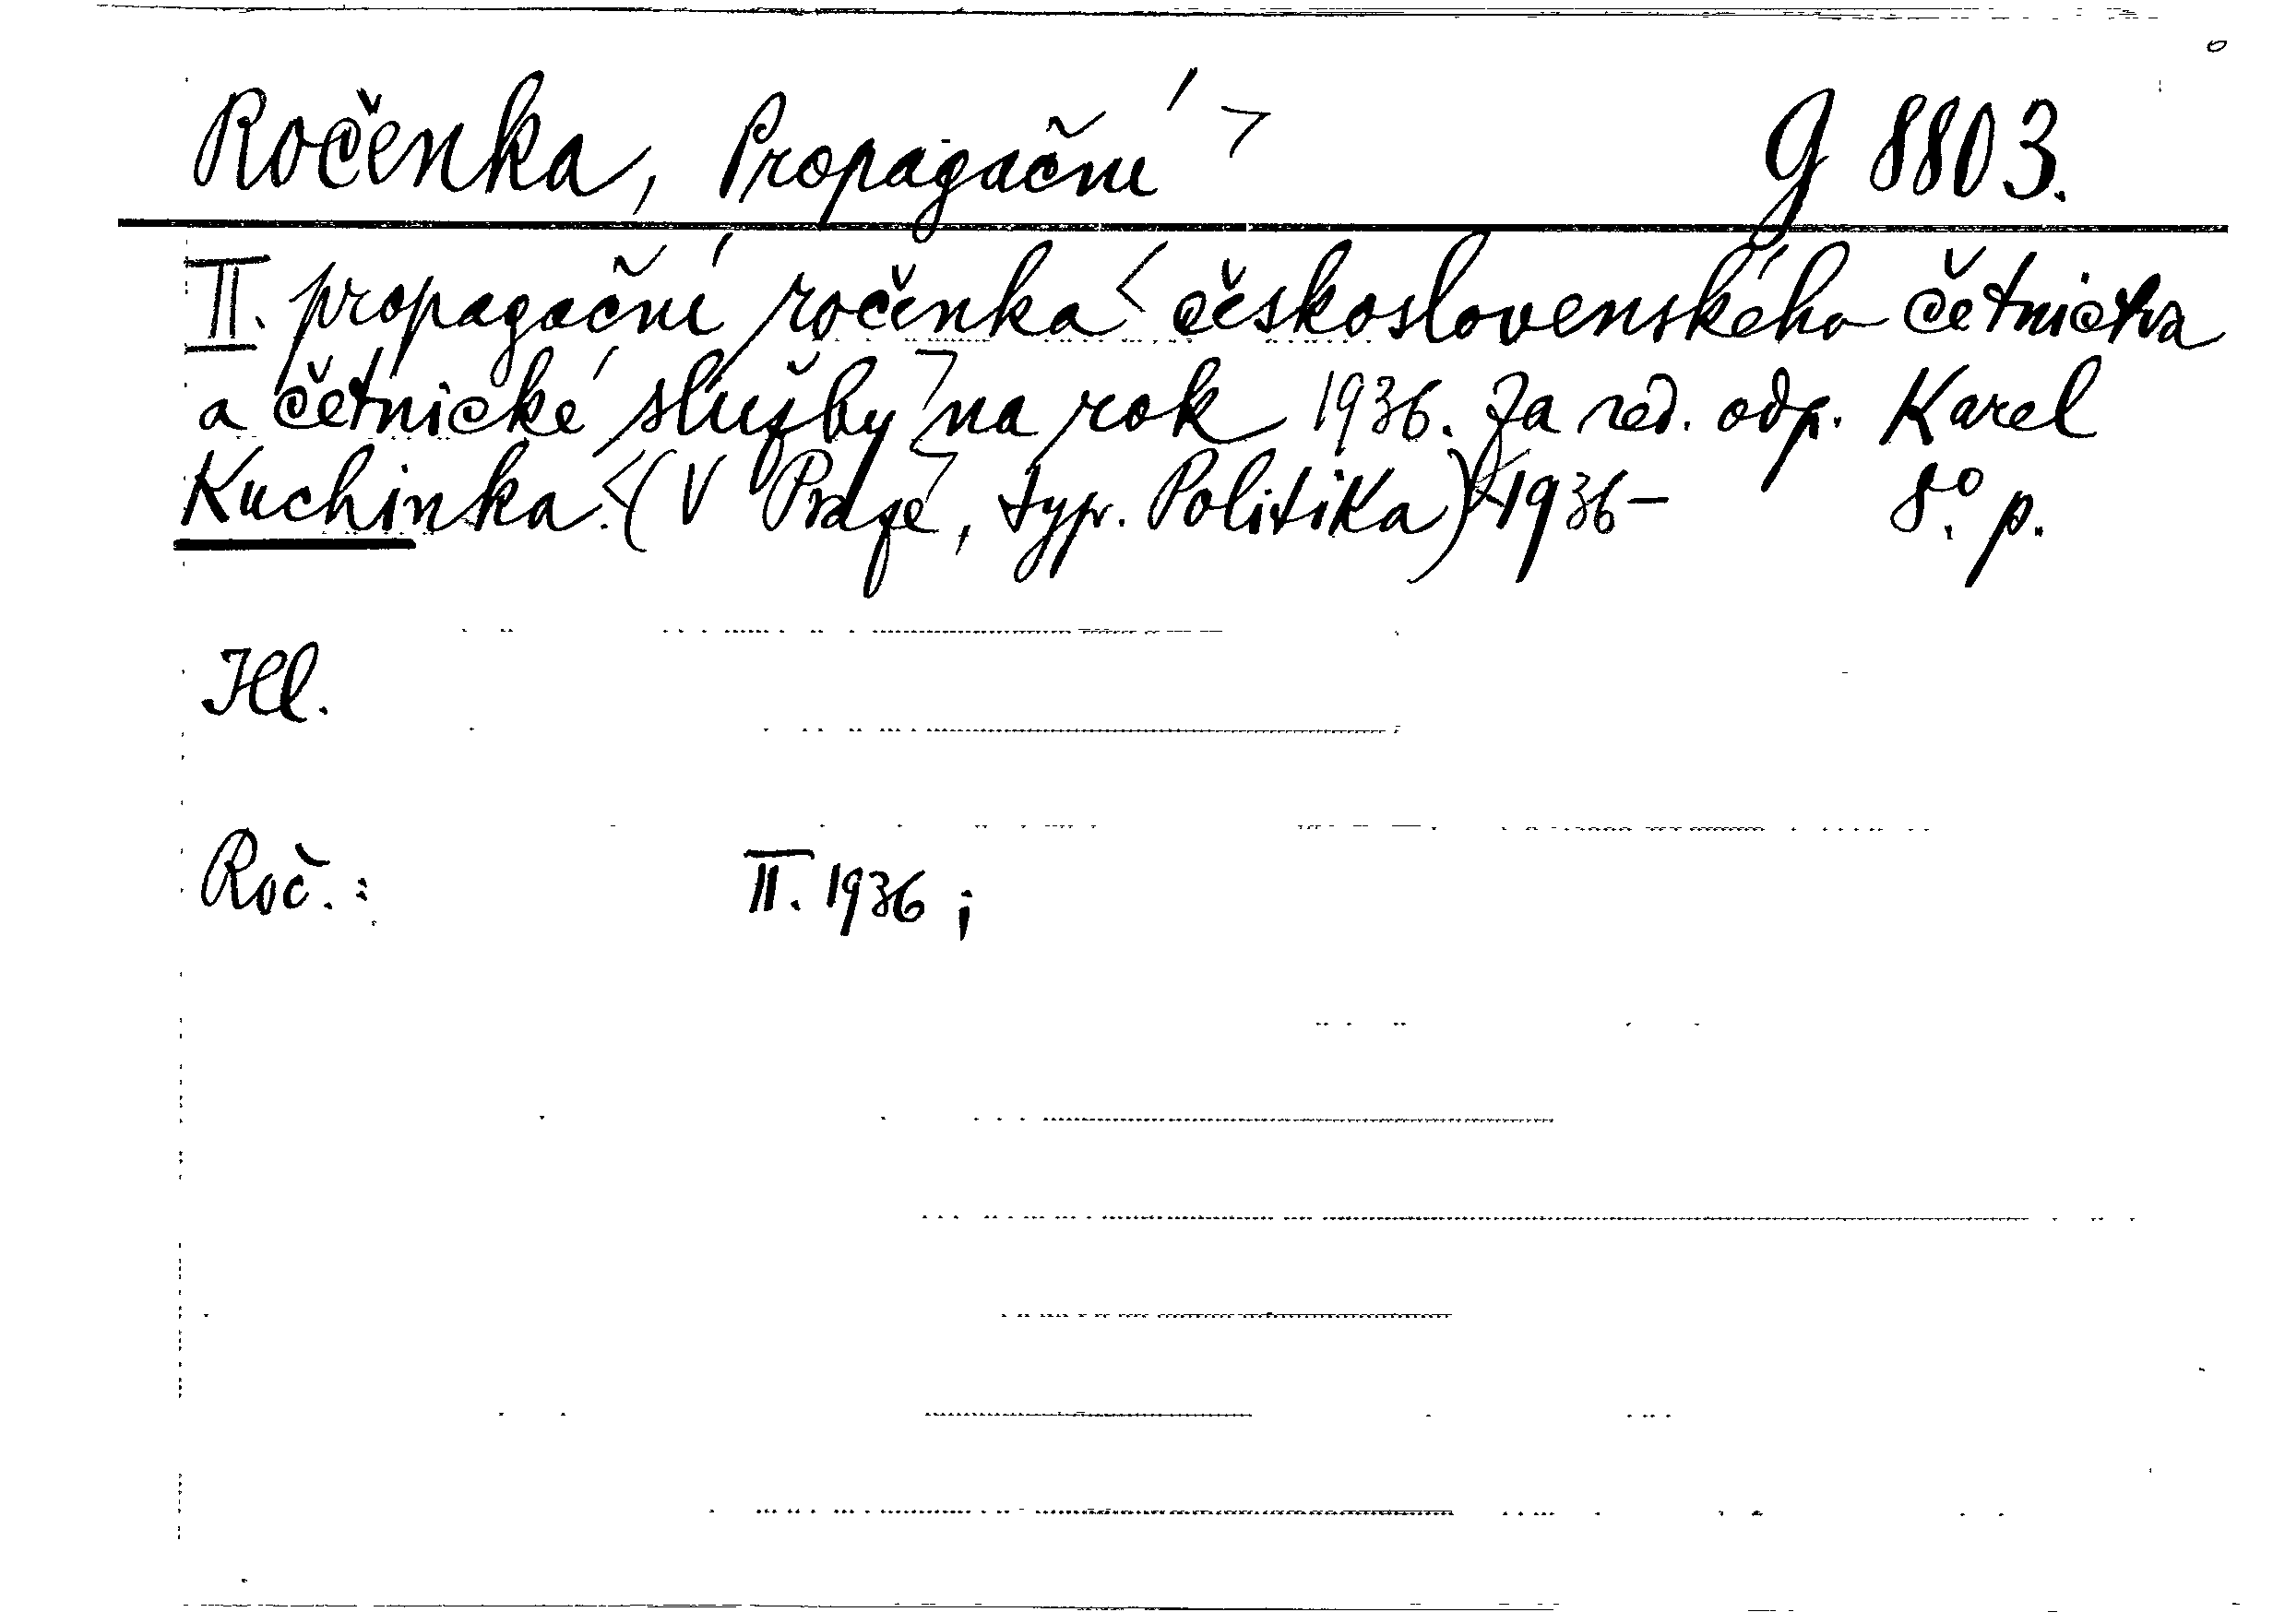 Ročenka, Propagační G 8803.
II. propagační ročenka československého četnictva
a četnické služby na rok 1936. Za red. odp. Karel
Kuchinka. (V Praze, typ. Politika) 1936- 8.° p.
Ill.
Roč.: II. 1936;